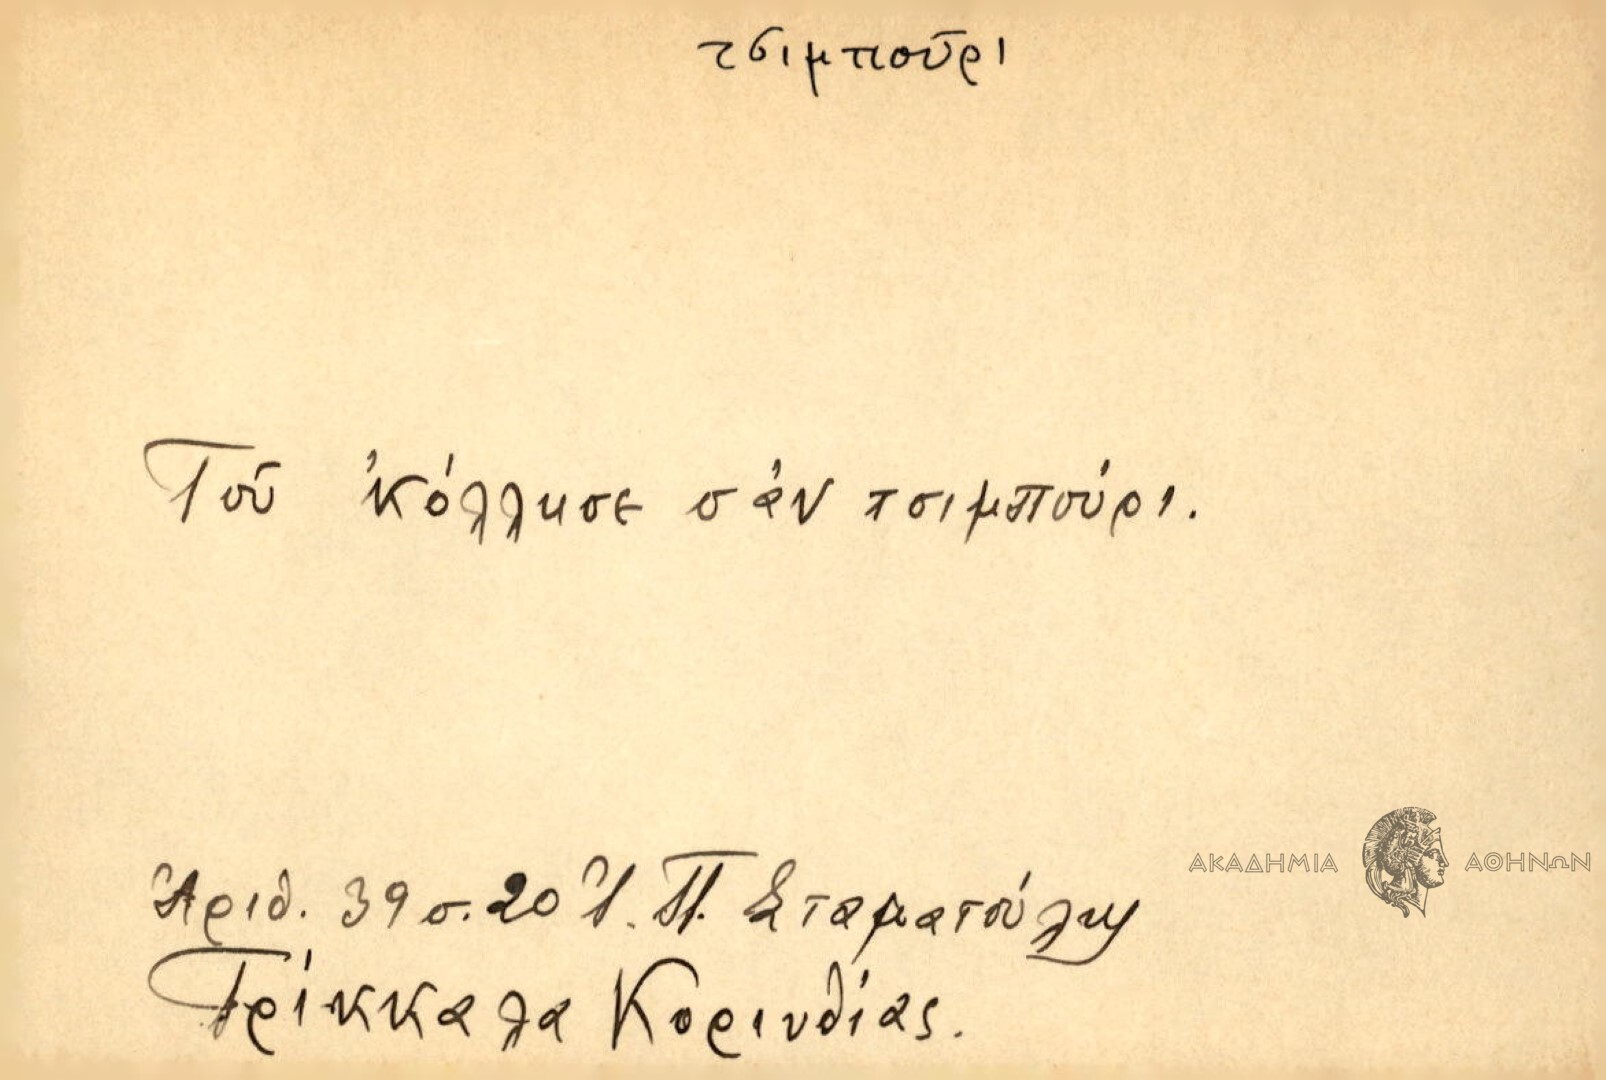 τσιμποῦρι
Τοῦ ἐκόλλησε σὰν τσιμπούρι.
Ἀριθ. 39 σ. 20 Ἰ. Π. Σταματούλη
Τρίκκαλα Κορινθίας.
ΑΚΑΔΗΜΙΑ ΑΘΗΝΩΝ